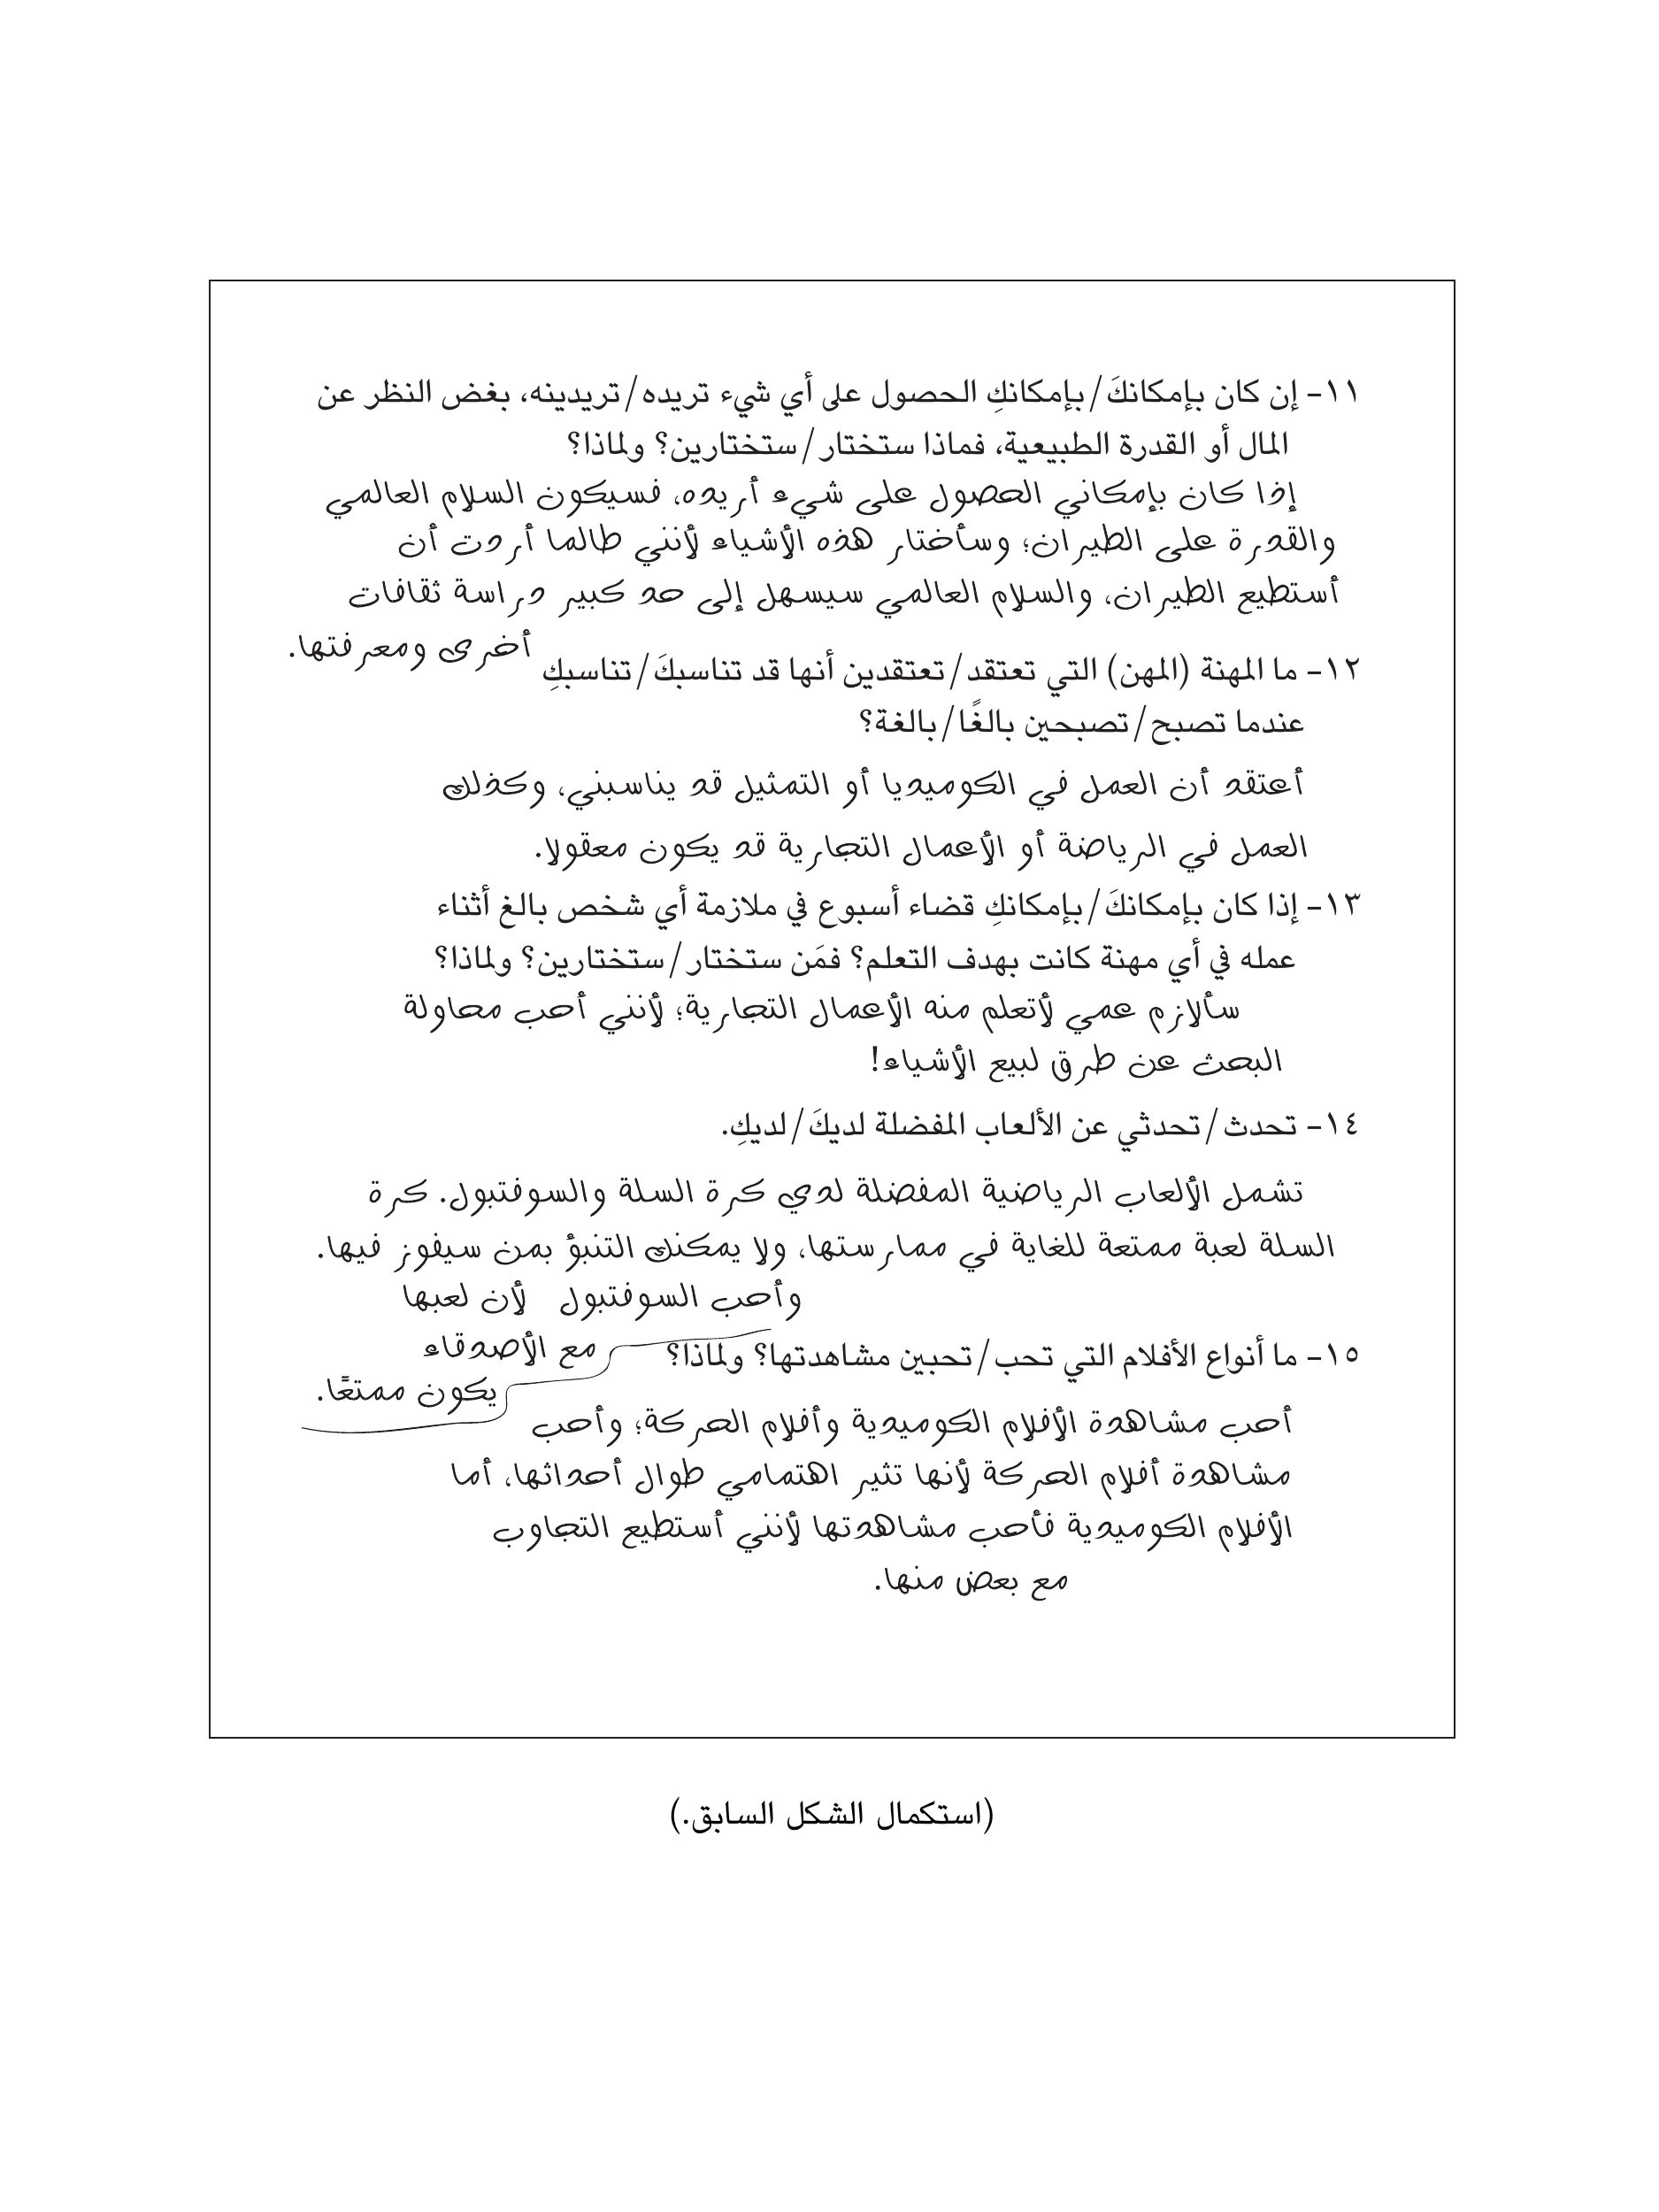 ١١- إن كان بإمكانكَ/بإمكانكِ الحصول على أي شيء تريده/تريدينه، بغض النظر عن
المال أو القدرة الطبيعية، فماذا ستختار/ستختارين؟ ولماذا؟
إذا كان بإمكاني الحصول على شيء أريده، فسيكون السلام العالمي
والقدرة على الطيران؛ وسأختار هذه الأشياء لأنني طالما أردت أن
أستطيع الطيران، والسلام العالمي سيسهل إلى حد كبير دراسة ثقافات
أخرى ومعرفتها.
١٢- ما المهنة (المهن) التي تعتقد/تعتقدين أنها قد تناسبكَ/تناسبكِ
عندما تصبح/تصبحين بالغًا/بالغة؟
أعتقد أن العمل في الكوميديا أو التمثيل قد يناسبني، وكذلك
العمل في الرياضة أو الأعمال التجارية قد يكون معقولا.
١٣- إذا كان بإمكانكَ/بإمكانكِ قضاء أسبوع في ملازمة أي شخص بالغ أثناء
عمله في أي مهنة كانت بهدف التعلم؟ فمَن ستختار/ستختارين؟ ولماذا؟
سألازم عمي لأتعلم منه الأعمال التجارية؛ لأنني أحب محاولة
البحث عن طرق لبيع الأشياء!
١٤- تحدث/تحدثي عن الألعاب المفضلة لديكَ/لديكِ.
تشمل الألعاب الرياضية المفضلة لدي كرة السلة والسوفتبول. كرة
السلة لعبة ممتعة للغاية في ممارستها، ولا يمكنك التنبؤ بمن سيفوز فيها.
وأحب السوفتبول لأن لعبها
مع الأصدقاء
يكون ممتعًا.
١٥- ما أنواع الأفلام التي تحب/تحبين مشاهدتها؟ ولماذا؟
أحب مشاهدة الأفلام الكوميدية وأفلام الحركة؛ وأحب
مشاهدة أفلام الحركة لأنها تثير اهتمامي طوال أحداثها، أما
الأفلام الكوميدية فأحب مشاهدتها لأنني أستطيع التجاوب
مع بعض منها.
(استكمال الشكل السابق.)